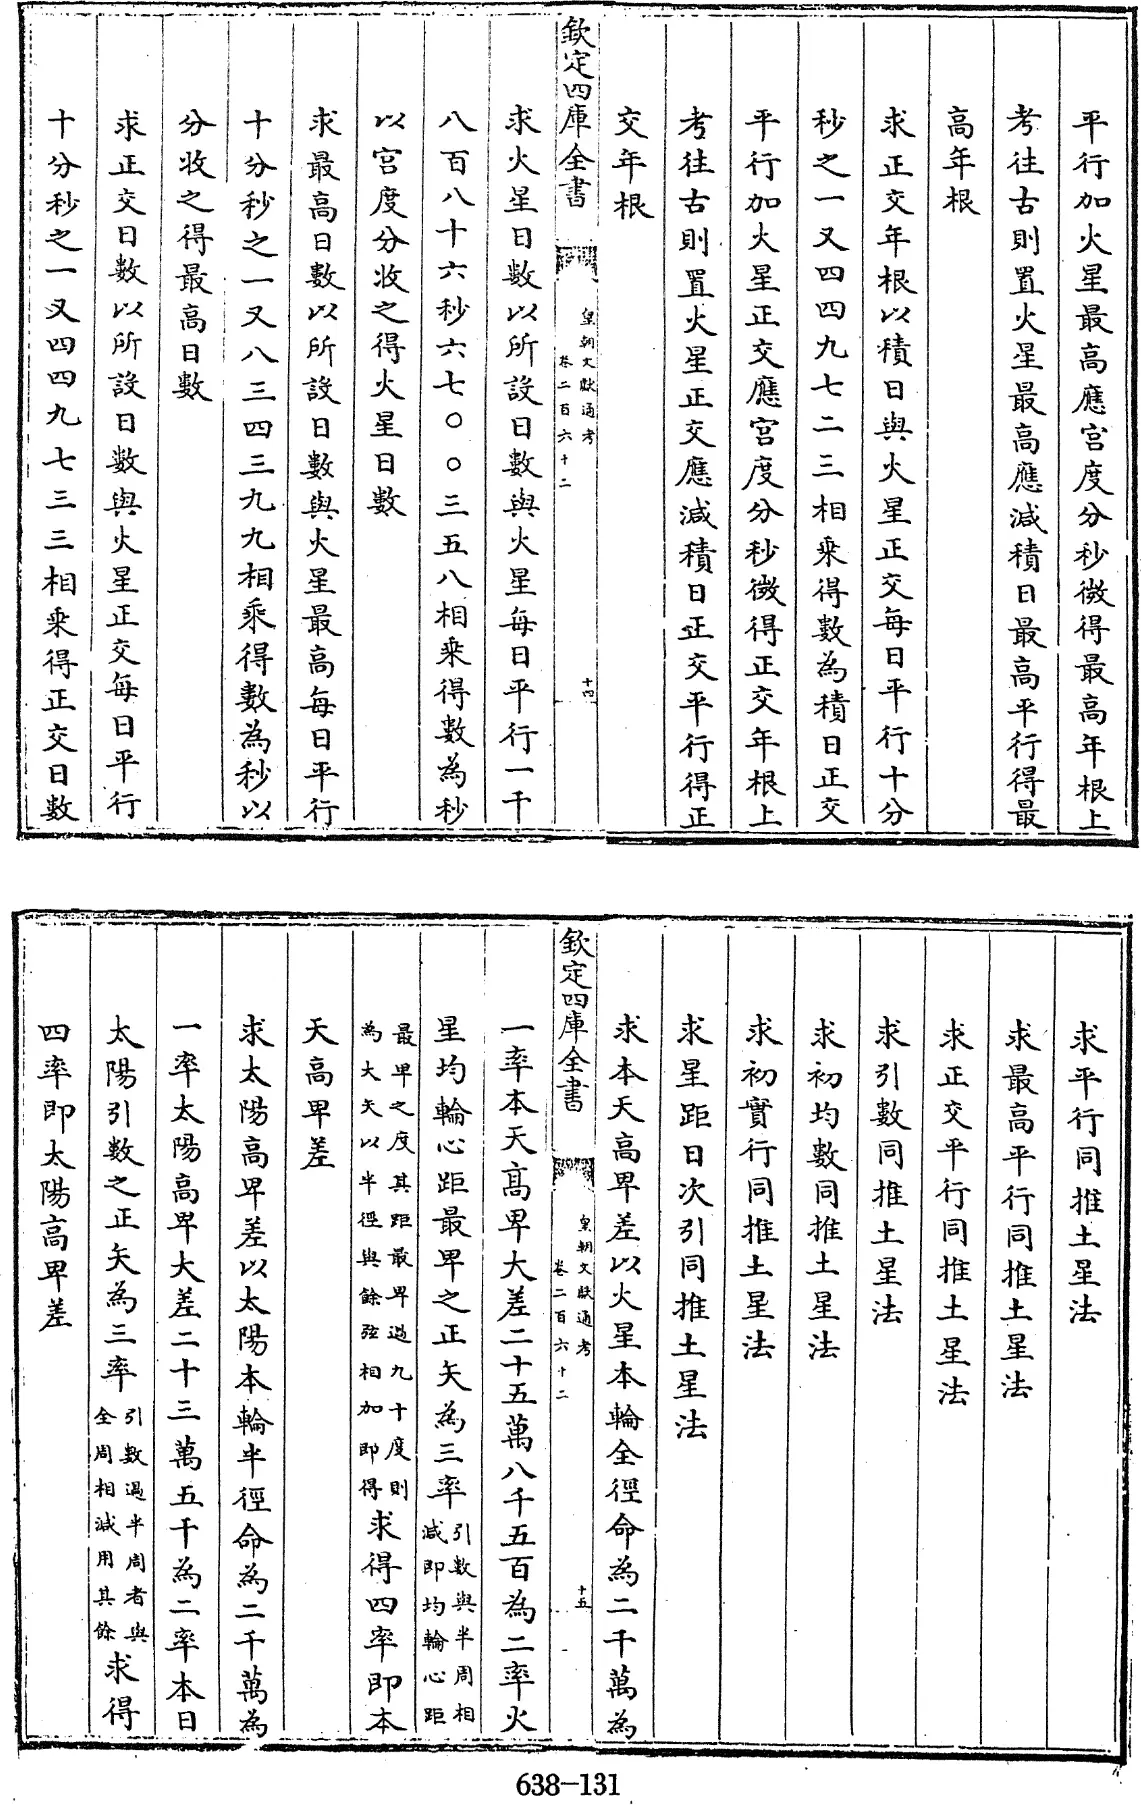 平行加火星最高應宮度分秒微得最高年根上
考往古則置火星最高應減積日最高平行得最
高年根
求正交年根以積日與火星正交每日平行十分
秒之一又四四九七二三相乗得數為積日正交
平行加火星正交應宮度分秒微得正交年根上
考往古則置火星正交應減積日正交平行得正
交年根
欽定四庫全書
皇朝文獻通考
卷二百六十二
十四
求火星日數以所設日數與火星每日平行一千
八百八十六秒六七〇〇三五八相乗得數為秒
以宮度分收之得火星日數
求最高日數以所設日數與火星最高每日平行
十分秒之一又八三四三九九相乘得數為秒以
分收之得最高日數
求正交日數以所設日數與火星正交每日平行
十分秒之一又四四九七三三相乗得正交日數
求平行同推土星法
求最高平行同推土星法
求正交平行同推土星法
求引數同推土星法
求初均數同推土星法
求初實行同推土星法
求星距日次引同推土星法
求本天高卑差以火星本輪全徑命為二千萬為
欽定四庫全書
皇朝文獻通考
卷二百六十二
十五
一率本天高卑大差二十五萬八千五百為二率火
星均輪心距最卑之正矢為三率引數與半周相減即均輪心距
最卑之度其距最卑過九十度則為大矢以半徑與餘弦相加即得求得四率即本
天高卑差
求太陽高卑差以太陽本輪半徑命為二千萬為
一率太陽高卑大差二十三萬五千為二率本日
太陽引數之正矢為三率引數過半周者與全周相減用其餘求得
四率即太陽高卑差
638-131